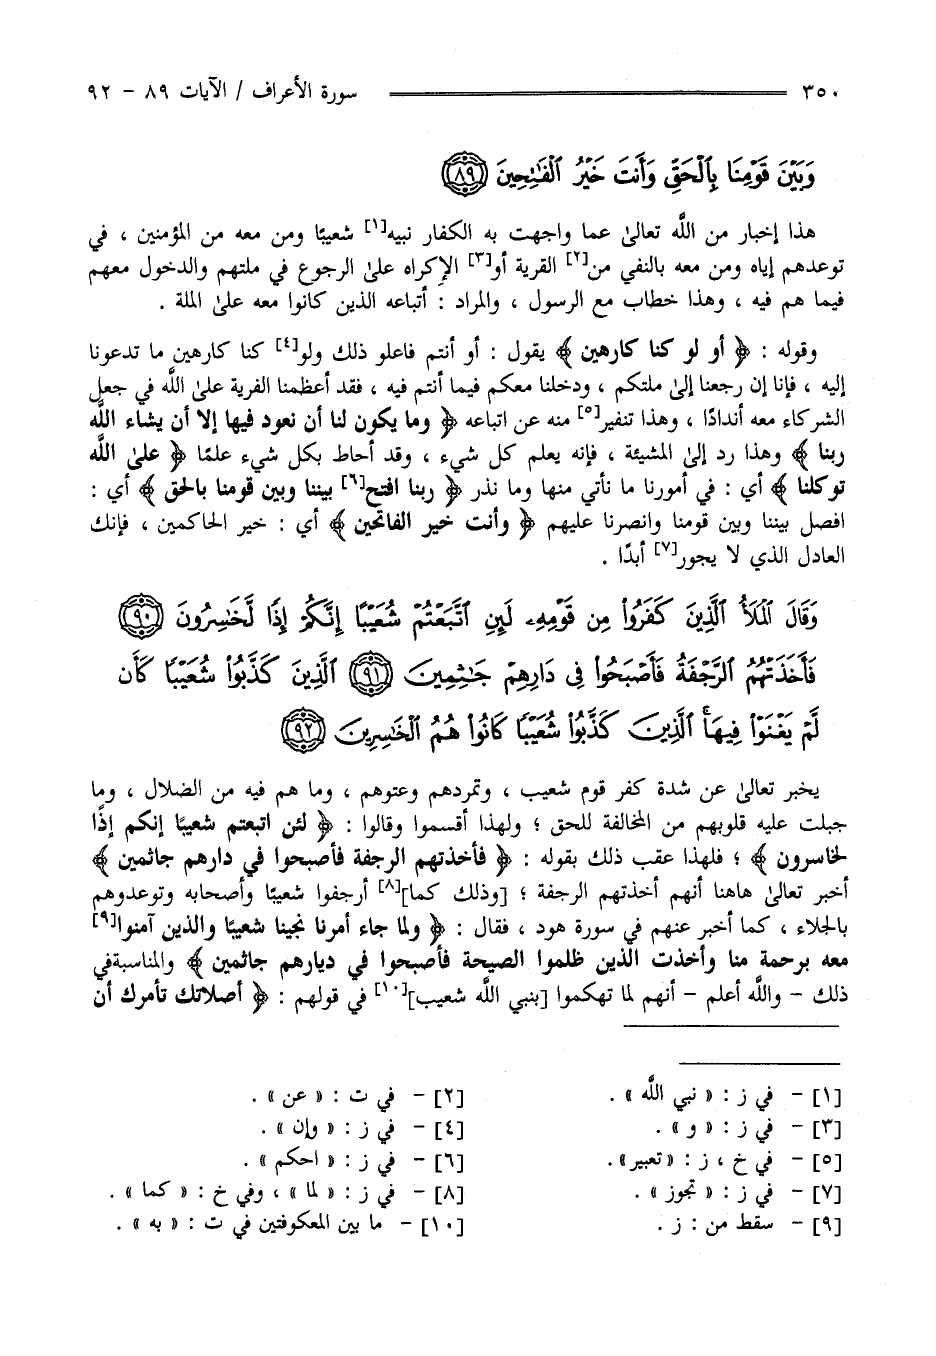 ٣٥٠ سورة الأعراف / الآيات ٨٩ - ٩٢
وَبَيْنَ قَوْمِنَا بِالْحَقِّ وَأَنتَ خَيْرُ الْفَاتِحِينَ ٨٩
هذا إخبار من اللَّه تعالىٰ عما واجهت به الكفار نبيه[١] شعيبًا ومن معه من المؤمنين ، في
توعدهم إياه ومن معه بالنفي من[٢] القرية أو[٣] الإكراه علىٰ الرجوع في ملتهم والدخول معهم
فيما هم فيه ، وهذا خطاب مع الرسول ، والمراد : أتباعه الذين كانوا معه علىٰ الملة .
وقوله : ﴿ أو لو كنا كارهين ﴾ يقول : أو أنتم فاعلو ذلك ولو[٤] كنا كارهين ما تدعونا
إليه ، فإنا إن رجعنا إلىٰ ملتكم ، ودخلنا معكم فيما أنتم فيه ، فقد أعظمنا الفرية علىٰ اللَّه في جعل
الشركاء معه أندادًا ، وهذا تنفير[٥] منه عن اتباعه ﴿ وما يكون لنا أن نعود فيها إلا أن يشاء اللَّه
ربنا ﴾ وهذا رد إلىٰ المشيئة ، فإنه يعلم كل شيء ، وقد أحاط بكل شيء علمًا ﴿ علىٰ اللَّه
توكلنا ﴾ أي : في أمورنا ما نأتي منها وما نذر ﴿ ربنا افتح[٦] بيننا وبين قومنا بالحق ﴾ أي :
افصل بيننا وبين قومنا وانصرنا عليهم ﴿ وأنت خير الفاتحين ﴾ أي : خير الحاكمين ، فإنك
العادل الذي لا يجور[٧] أبدًا .
وَقَالَ الْمَلَأُ الَّذِينَ كَفَرُواْ مِن قَوْمِهِۦ لَئِنِ اتَّبَعْتُمْ شُعَيْبًا إِنَّكُمْ إِذًا لَّخَاسِرُونَ ٩٠
فَأَخَذَتْهُمُ الرَّجْفَةُ فَأَصْبَحُواْ فِى دَارِهِمْ جَاثِمِينَ ٩١ الَّذِينَ كَذَّبُواْ شُعَيْبًا كَأَن
لَّمْ يَغْنَوْا فِيهَا الَّذِينَ كَذَّبُواْ شُعَيْبًا كَانُواْ هُمُ الْخَاسِرِينَ ٩٢
يخبر تعالىٰ عن شدة كفر قوم شعيب ، وتمردهم وعتوهم ، وما هم فيه من الضلال ، وما
جبلت عليه قلوبهم من المخالفة للحق ؛ ولهذا أقسموا وقالوا : ﴿ لئن اتبعتم شعيبًا إنكم إذًا
لخاسرون ﴾ ؛ فلهذا عقب ذلك بقوله : ﴿ فأخذتهم الرجفة فأصبحوا في دارهم جاثمين ﴾
أخبر تعالىٰ هاهنا أنهم أخذتهم الرجفة ؛ [وذلك كما][٨] أرجفوا شعيبًا وأصحابه وتوعدوهم
بالجلاء ، كما أخبر عنهم في سورة هود ، فقال : ﴿ ولما جاء أمرنا نجينا شعيبًا والذين آمنوا[٩]
معه برحمة منا وأخذت الذين ظلموا الصيحة فأصبحوا في ديارهم جاثمين ﴾ والمناسبة في
ذلك - واللَّه أعلم - أنهم لما تهكموا [بنبي اللَّه شعيب][١٠] في قولهم : ﴿ أصلاتك تأمرك أن
[١] - في ز : « نبي اللَّه » . [٢] - في ت : « عن » .
[٣] - في ز : « و » . [٤] - في ز : « وإن » .
[٥] - في خ ، ز : «تعبير» . [٦] - في ز : « احكم » .
[٧] - في ز : « تجوز » . [٨] - في ز : « لما » ، وفي خ : « كما » .
[٩] - سقط من : ز . [١٠] - ما بين المعكوفتين في ت : « به » .